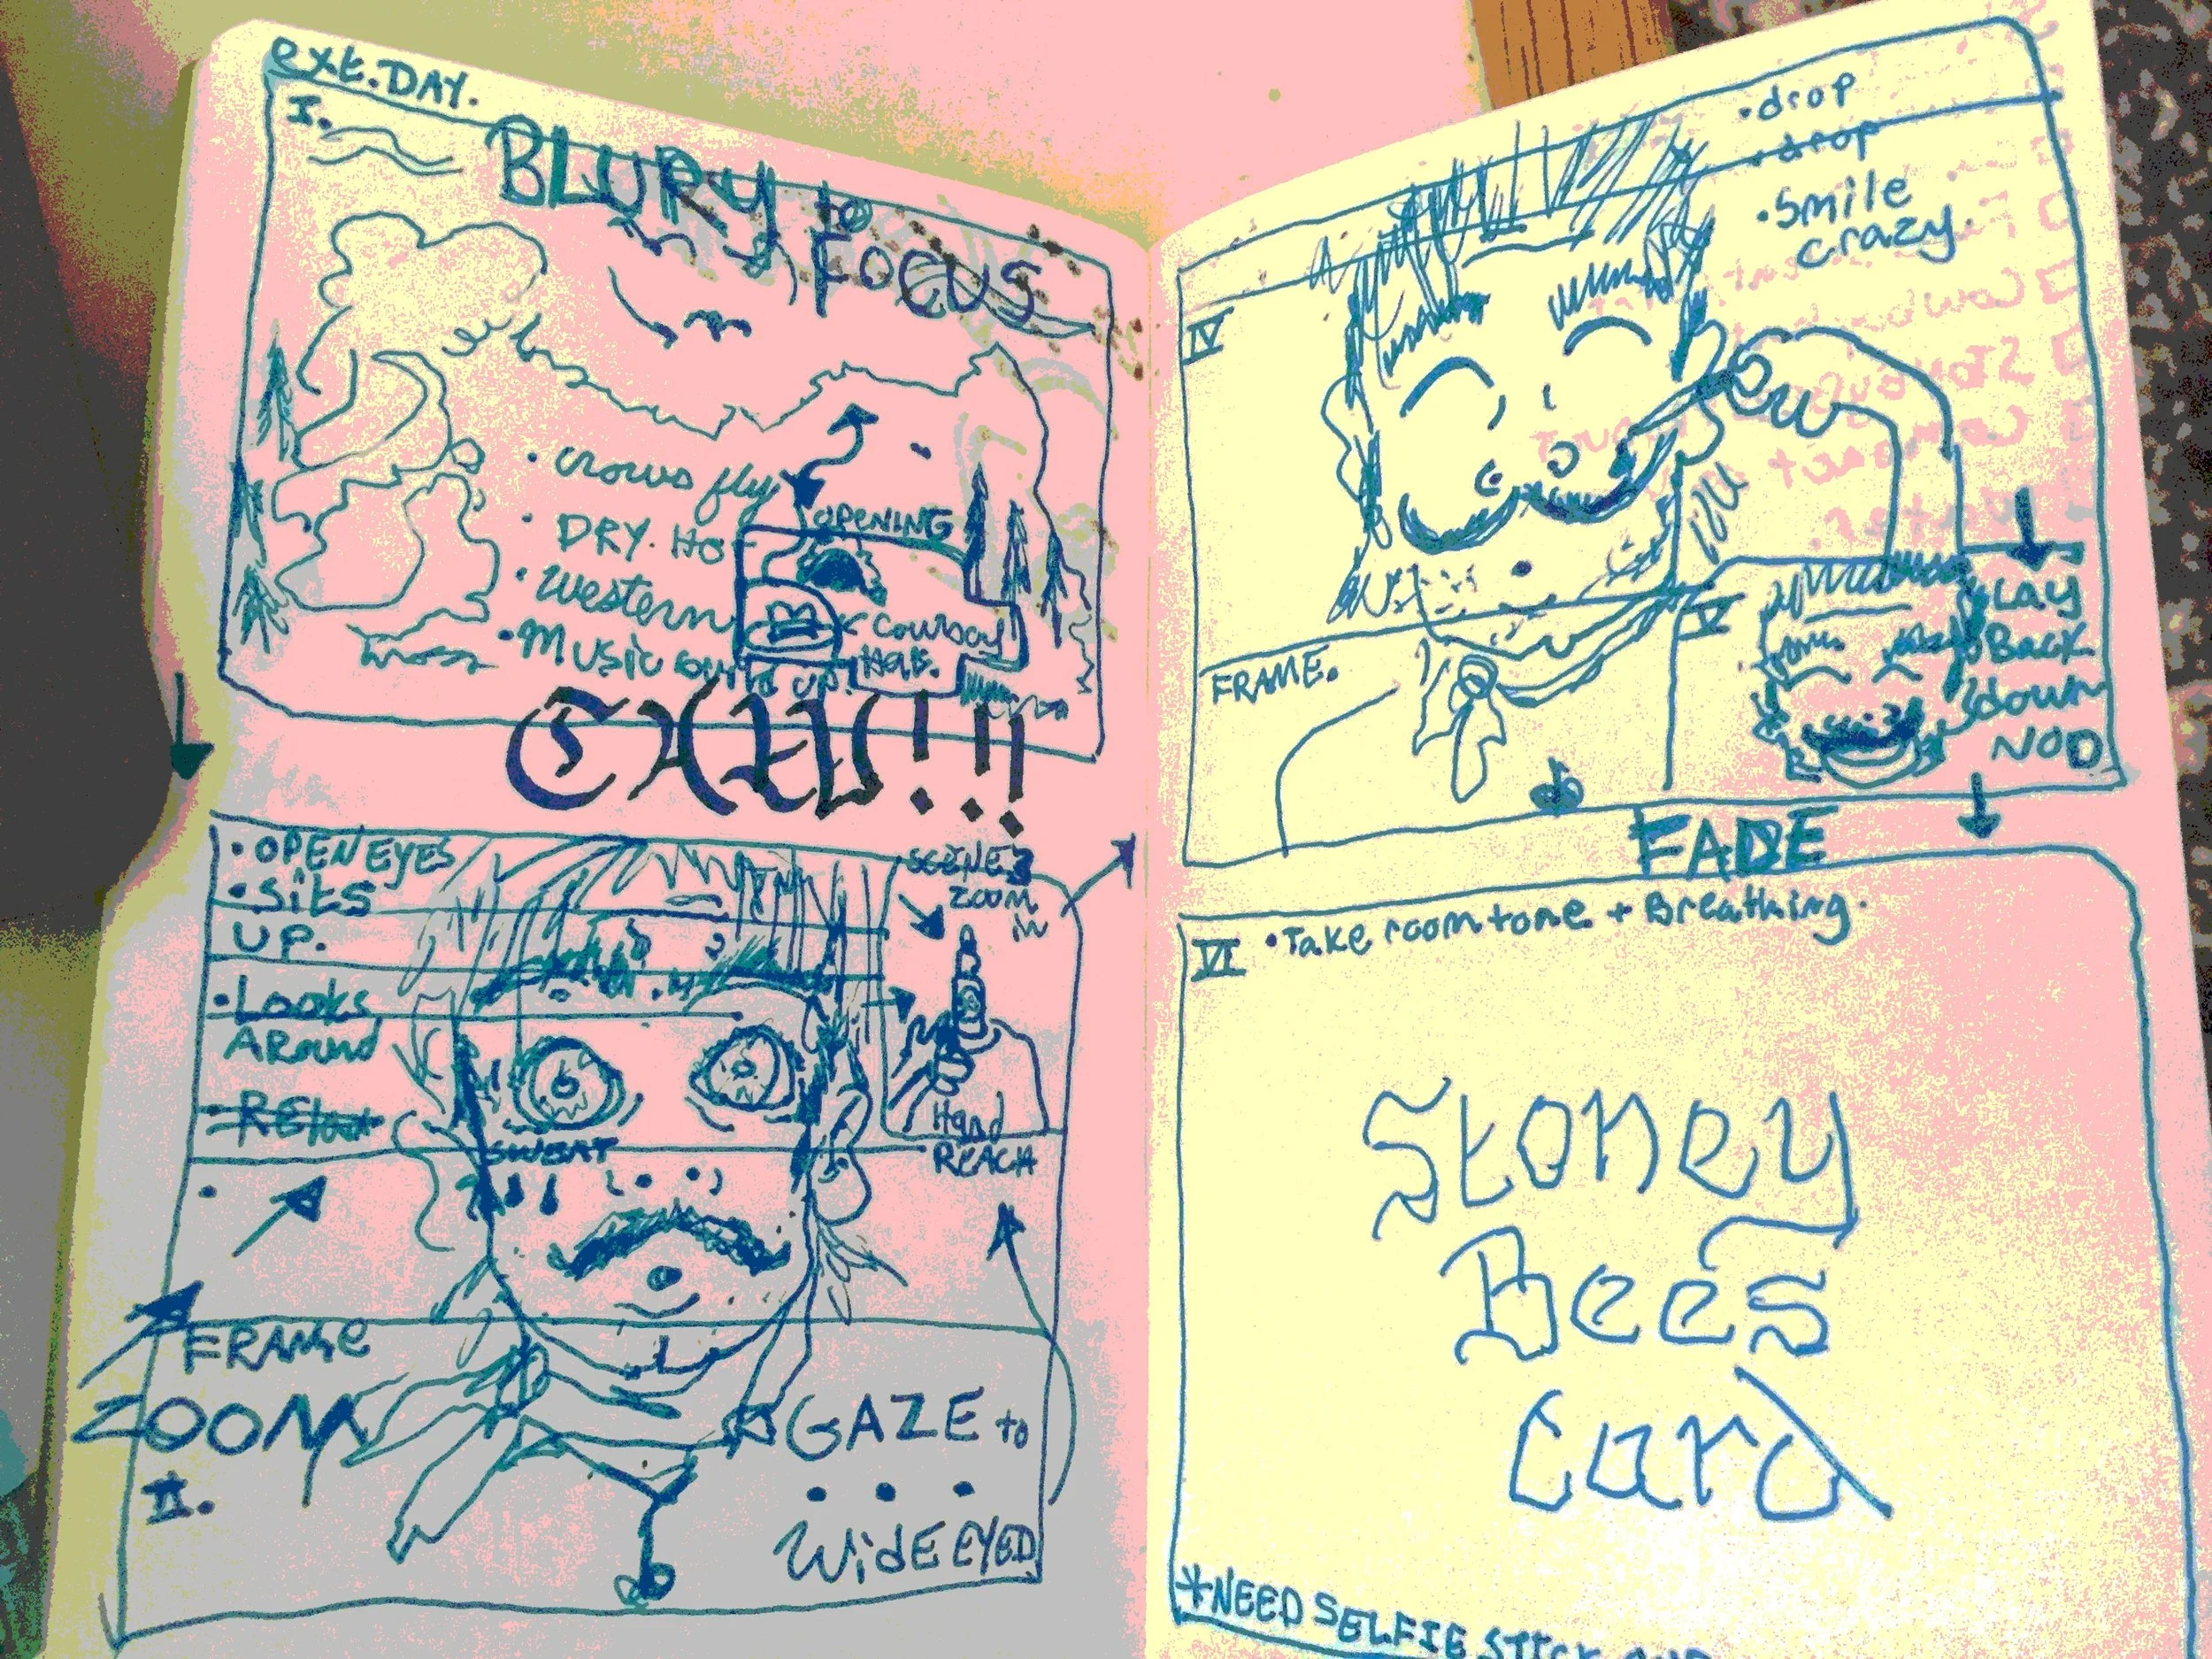 ext. DAY.
I.
BLURY to
FOCUS
• crows fly
• DRY. HO
• Western
• Music build up!
OPENING
Cowboy
Hat.
CAW!!!
• OPEN EYES
• Sits
UP.
• Looks
ARound
SWEAT
SCENE 3
zoom
in
Hand
REACH
FRAME
ZOOM
II.
GAZE to
• • •
WidE EYED
• drop
• drop
• Smile
crazy.
IV
FRAME.
V
LAY
BACK
down
NOD
FADE
VI • Take room tone + Breathing.
Stoney
Bees
Card
*NEED SELFIE STICK